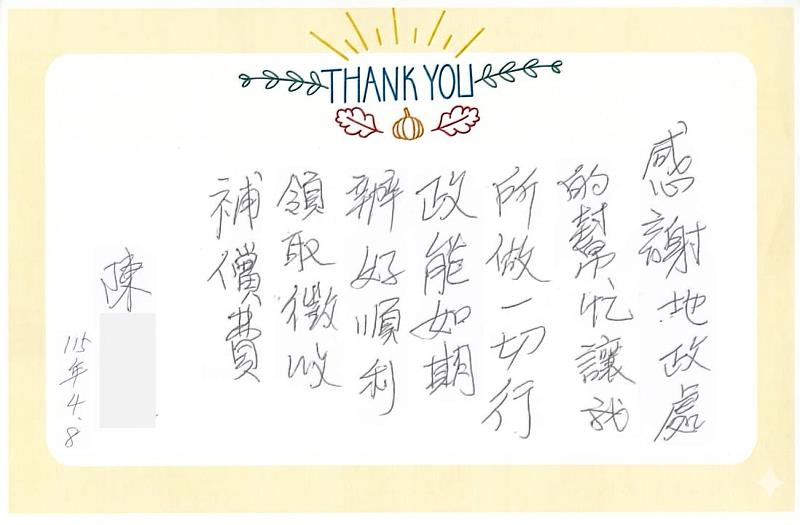 THANK YOU
感謝地政處
的幫忙讓我
所做一切行
政能如期
辦好順利
領取徵收
補償費
陳
115年4.8